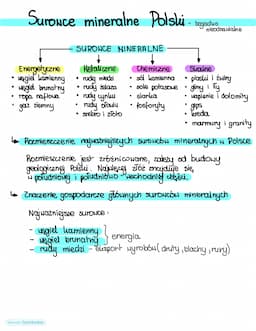 Surowce mineralne Polski - bogactwa nieodnawialne
SUROWCE MINERALNE
Energetyczne
• węgiel kamienny
• węgiel brunatny
• ropa naftowa
• gaz ziemny
Metaliczne
• rudy miedzi
• rudy żelaza
• rudy cynku
• rudy ołowiu
• srebro i złoto
Chemiczne
• sól kamienna
• sole potasowe
• siarka
• fosforyty
Skalne
• piaski i żwiry
• gliny i iły
• wapienie i dolomity
• gips
• kreda
• marmury i granity
Rozmieszczenie najważniejszych surowców mineralnych w Polsce
Rozmieszczenie jest zróżnicowane, zależy od budowy
geologicznej Polski. Najwięcej złóż znajduje się
w południowej i południowo-wschodniej części.
Znaczenie gospodarcze głównych surowców mineralnych
Najważniejsze surowce:
- węgiel kamienny
- węgiel brunatny } energia
- rudy miedzi - eksport wyrobów (druty, blachy, rury)